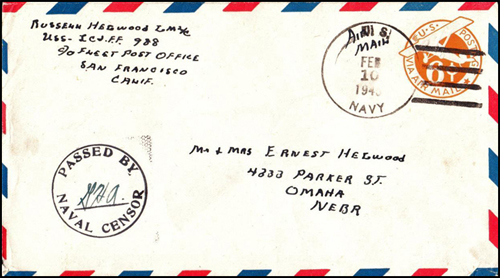 RUSSELL HEGWOOD
USS-
% FLEET POST OFFICE
SAN FRANCISCO
CALIF.
MAIN
FEB
10
NAVY
U.S. POSTAGE
6¢
VIA AIR MAIL
PASSED BY
NAVAL CENSOR
MR + MRS ERNEST HEGWOOD
4233 PARKER ST.
OMAHA
NEBR